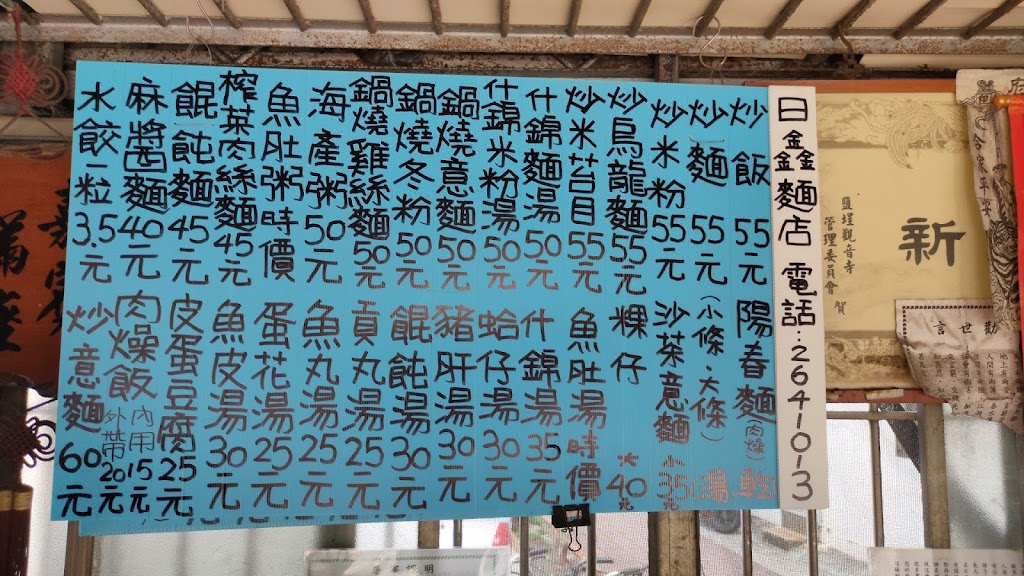 日鑫麵店 電話:2641013
炒飯55元
炒麵55元
炒米粉55元
炒烏龍麵55元
炒米苔目55元
什錦麵湯50元
什錦米粉湯50元
鍋燒意麵50元
鍋燒冬粉50元
鍋燒雞絲麵50元
海產粥50元
魚肚粥時價
榨菜肉絲麵45元
餛飩麵45元
麻醬麵40元
水餃一粒3.5元
陽春麵(肉燥)乾
(小條.大條)湯
沙茶意麵小35元
粿仔大40元
魚肚湯時價
什錦湯35元
蛤仔湯30元
豬肝湯30元
餛飩湯30元
貢丸湯25元
魚丸湯25元
蛋花湯25元
魚皮湯30元
皮蛋豆腐25元
肉燥飯內用15元
外帶20元
炒意麵60元
新
鹽埕觀音寺
管理委員會 賀
勸世言